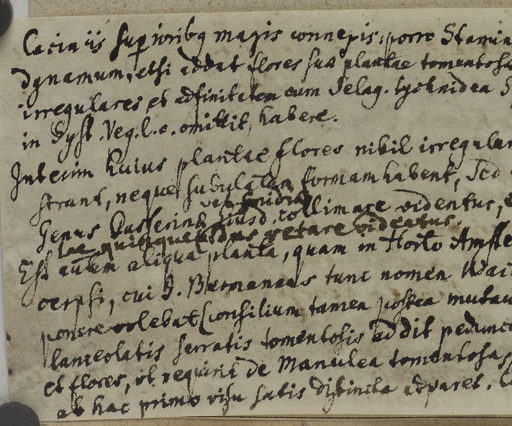 laciniis superioribq magis connexis; porro Stamina
dynamum, etsi addat flores suae plantae tomentosa
irregulares et adfinitatem cum Selag. Lychnidea
in Syst. Veg. l. c. omittit, habere.
Interim huius plantae flores nihil irregular
strant, neque subulatam formam habent, Sed
vel Smidia
Genus ejusd. collimare videntur,
quinquefidus vetare videatur.
Est autem aliqua planta, quam in Horto Amste
cerpsi, cui D. Burmannus tunc nomen
ponere volebat (consilium tamen postea mutav
lanceolatis serratis tomentosis addit pedunc
et flores, et requiri de Manulea tomentosa,
ab hac primo visu satis distincta adpares.